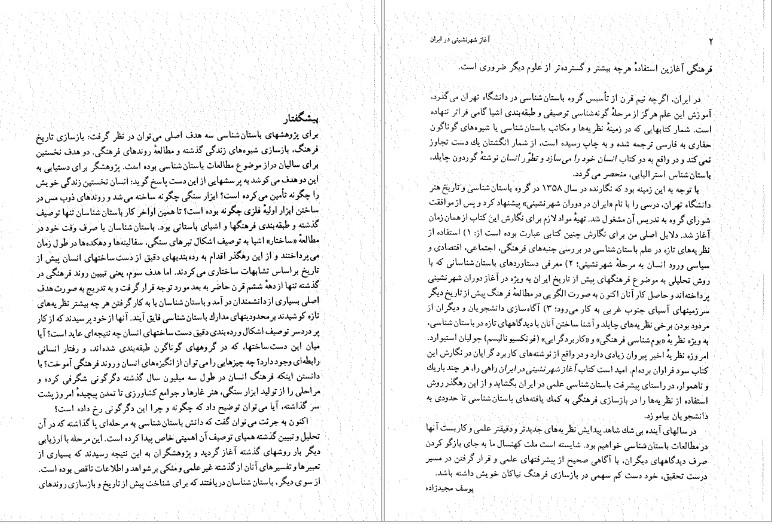 پیشگفتار
برای پژوهشهای باستان‌شناسی سه هدف اصلی می‌توان در نظر گرفت: بازسازی تاریخ
فرهنگ، بازسازی شیوه‌های زندگی گذشته و مطالعهٔ روندهای فرهنگی. دو هدف نخستین
برای سالیان دراز موضوع مطالعات باستان‌شناسی بوده است. پژوهشگر برای دستیابی به
این دو هدف می‌کوشد به پرسشهایی از این دست پاسخ گوید: انسان نخستین زندگی خویش
را چگونه تأمین می‌کرده است؟ ابزار سنگی چگونه ساخته می‌شد و روندهای ذوب مس در
ساختن ابزار اولیهٔ فلزی چگونه بوده است؟ تا همین اواخر کار باستان‌شناسان تنها توصیف
گذشته و طبقه‌بندی فرهنگها و اشیای باستانی بود. باستان‌شناسان یا صرف وقت خود در
مطالعهٔ «ساختار» اشیا به توصیف اشکال تبرهای سنگی، سفالینه‌ها و دهکده‌ها در طول زمان
می‌پرداختند و از این رهگذر اقدام به رده‌بندیهای دقیق از دست ساختهای انسان پیش از
تاریخ براساس تشابهات ساختاری می‌کردند. اما هدف سوم، یعنی تبیین روند فرهنگی در
گذشته تنها از دههٔ ششم قرن حاضر به بعد مورد توجه قرار گرفت و به تدریج به صورت هدف
اصلی بسیاری از دانشمندان در آمد و باستان‌شناسان با به کار گرفتن هر چه بیشتر نظریه‌های
تازه کوشیدند بر محدودیتهای مدارك باستان‌شناسی فایق آیند. آنها از خود پرسیدند که از کار
پر دردسر توصیف اشکال و رده‌بندی دقیق دست ساختهای انسان چه نتیجه‌ای عاید است؟ آیا
میان این دست‌ساختها، که در گروههای گوناگون طبقه‌بندی شده‌اند، و رفتار انسانی
رابطه‌ای وجود دارد؟ چه چیزهایی را می‌توان از انگیزه‌های انسان و روند فرهنگی آموخت؟ با
دانستن اینکه فرهنگ انسان در طول سه میلیون سال گذشته دگرگونی شگرفی کرده و
مراحلی را از تولید ابزار سنگی، هنر غارها و جوامع کشاورزی تا تمدن پیچیدهٔ امروز پشت
سر گذاشته، آیا می‌توان توضیح داد که چگونه و چرا این دگرگونی رخ داده است؟
اکنون به جرئت می‌توان گفت که دانش باستان‌شناسی به مرحله‌ای پا گذاشته که در آن
تحلیل و تبیین گذشته همپای توصیف آن اهمیتی خاص پیدا کرده است. این مرحله با ارزیابی
دیگر بار روشهای گذشته آغاز گردید و پژوهشگران به این نتیجه رسیدند که بسیاری از
تعبیرها و تفسیرهای آنان از گذشته غیر علمی و متکی بر شواهد و اطلاعات ناقص بوده است.
از سوی دیگر، باستان‌شناسان دریافتند که برای شناخت پیش از تاریخ و بازسازی روندهای
۲ آغاز شهرنشینی در ایران
فرهنگی آغازین استفادهٔ هرچه بیشتر و گسترده‌تر از علوم دیگر ضروری است.
در ایران، اگرچه نیم قرن از تأسیس گروه باستان‌شناسی در دانشگاه تهران می‌گذرد،
آموزش این علم هرگز از مرحلهٔ گونه‌شناسی توصیفی و طبقه‌بندی اشیا گامی فراتر ننهاده
است. شمار کتابهایی که در زمینهٔ نظریه‌ها و مکاتب باستان‌شناسی یا شیوه‌های گوناگون
حفاری به فارسی ترجمه شده و به چاپ رسیده است، از شمار انگشتان یك دست تجاوز
نمی‌کند و در واقع به دو کتاب انسان خود را می‌سازد و تطوّر انسان نوشتهٔ گوردون چایلد،
باستان‌شناس استرالیایی، منحصر می‌گردد.
با توجه به این زمینه بود که نگارنده در سال ۱۳۵۸ در گروه باستان‌شناسی و تاریخ هنر
دانشگاه تهران، درسی را با نام «ایران در دوران شهرنشینی» پیشنهاد کرد و پس از موافقت
شورای گروه به تدریس آن مشغول شد. تهیهٔ مواد لازم برای نگارش این کتاب از همان زمان
آغاز شد. دلایل اصلی من برای نگارش چنین کتابی عبارت بوده است از: ۱) استفاده از
نظریه‌های تازه در علم باستان‌شناسی در بررسی جنبه‌های فرهنگی، اجتماعی، اقتصادی و
سیاسی ورود انسان به مرحلهٔ شهرنشینی؛ ۲) معرفی دستاوردهای باستان‌شناسانی که با
روش تحلیلی به موضوع فرهنگهای پیش از تاریخ ایران به ویژه در آغاز دوران شهرنشینی
پرداخته‌اند و حاصل کار آنان اکنون به صورت الگویی در مطالعهٔ فرهنگ پیش از تاریخ دیگر
سرزمینهای آسیای جنوب غربی به کار می‌رود؛ ۳) آگاه‌سازی دانشجویان و دیگران از
مردود بودن برخی نظریه‌های چایلد و آشنا ساختن آنان با دیدگاههای تازه در باستان‌شناسی،
به ویژه نظریهٔ «بوم‌شناسی فرهنگی» و «کاربردگرایی» (فونکسیونالیسم) جولیان استیوارد.
امروزه نظریهٔ اخیر پیروان زیادی دارد و در واقع از نوشته‌های کاربردگرایان در نگارش این
کتاب سود فراوان برده‌ام. امید است کتاب آغاز شهرنشینی در ایران راهی را، هر چند باریك
و ناهموار، در راستای پیشرفت باستان‌شناسی علمی در ایران بگشاید و از این رهگذر روش
استفاده از نظریه‌ها را در بازسازی فرهنگی به کمك یافته‌های باستان‌شناسی تا حدودی به
دانشجویان بیاموزد.
در سالهای آینده بی‌شك شاهد پیدایش نظریه‌های جدیدتر و دقیقتر علمی و کاربست آنها
در مطالعات باستان‌شناسی خواهیم بود. شایسته است ملت کهنسال ما به جای بازگو کردن
صرف دیدگاههای دیگران، با آگاهی صحیح از پیشرفتهای علمی و قرار گرفتن در مسیر
درست تحقیق، خود دست کم سهمی در بازسازی فرهنگ نیاکان خویش داشته باشد.
یوسف مجیدزاده